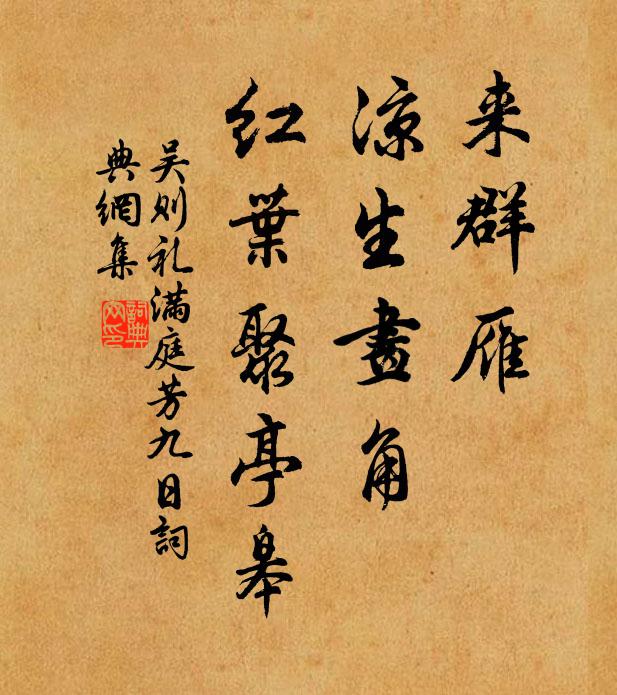 来群雁
凉生畫角
红葉聚亭皋
吴则礼满庭芳九日詞
典網集
詞典
网印